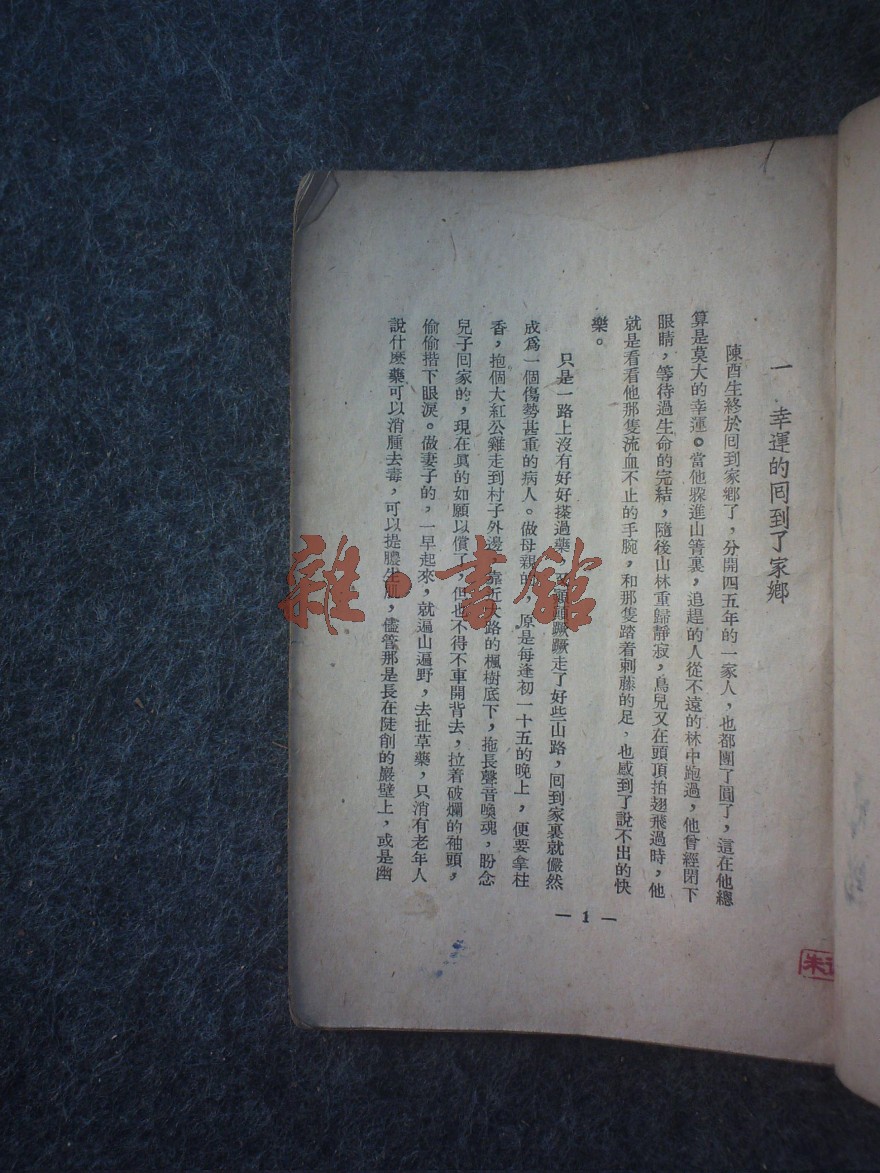 一　幸運的囘到了家鄉
陳酉生終於囘到家鄉了，分開四五年的一家人，也都團了圓了，這在他總
算是莫大的幸運。當他躱進山箐裏，追趕的人從不遠的林中跑過，他曾經閉下
眼睛，等待過生命的完結，隨後山林重歸靜寂，鳥兒又在頭頂拍翅飛過時，他
就是看看他那隻流血不止的手腕，和那隻踏着刺藤的足，也感到了說不出的快
樂。
只是一路上沒有好好搽過藥，蹶蹶走了好些山路，囘到家裏就儼然
成爲一個傷勢甚重的病人。做母親的，原是每逢初一十五的晚上，便要拿柱
香，抱個大紅公雞走到村子外邊，靠近大路的楓樹底下，拖長聲音喚魂，盼念
兒子囘家的，現在眞的如願以償了，但也不得不車開背去，拉着破爛的袖頭，
偷偷揩下眼淚。做妻子的，一早起來，就遍山遍野，去扯草藥，只消有老年人
說什麽藥可以消腫去毒，可以提膿生肌，儘管那是長在陡削的巖壁上，或是幽
— 1 —
朱
雜·書館